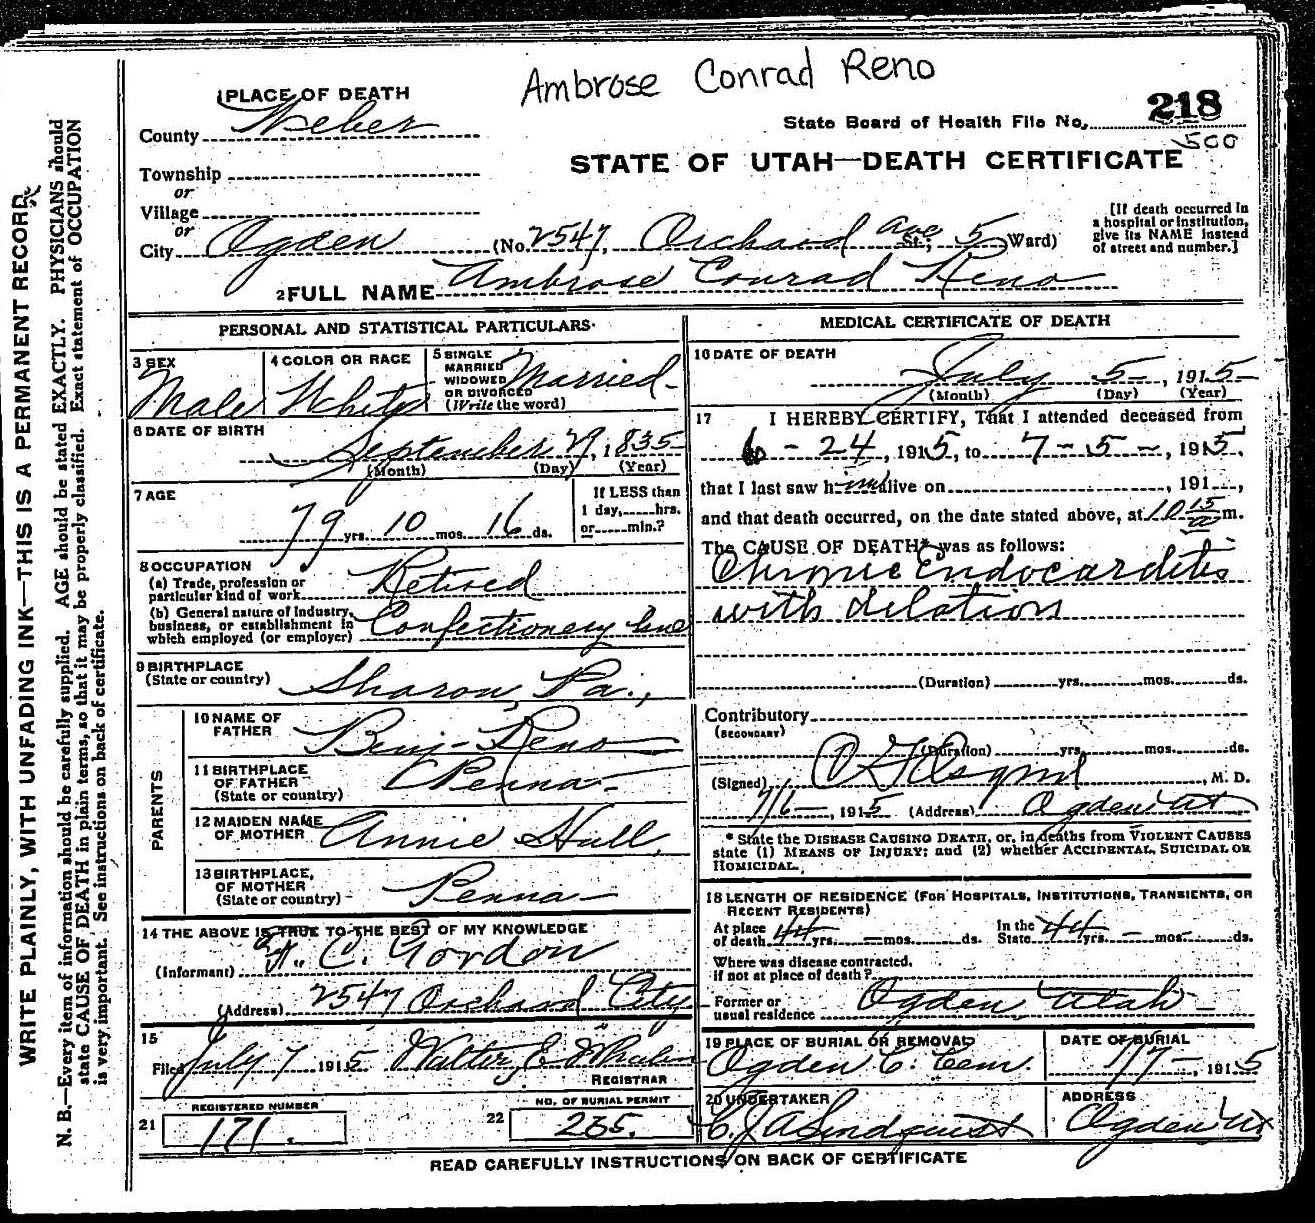 Ambrose Conrad Reno
1 PLACE OF DEATH
County Weber
State Board of Health File No. 218
500
STATE OF UTAH—DEATH CERTIFICATE
Township
or
Village
or
City Ogden (No. 2547, Orchard Ave St.; 5 Ward)
[If death occurred in
a hospital or institution,
give its NAME instead
of street and number.]
2 FULL NAME Ambrose Conrad Reno
PERSONAL AND STATISTICAL PARTICULARS
3 SEX
Male
4 COLOR OR RACE
White
5 SINGLE
MARRIED
WIDOWED
OR DIVORCED
(Write the word)
Married
6 DATE OF BIRTH
September 1835
(Month) (Day) (Year)
7 AGE
79 yrs. 10 mos. 16 ds.
If LESS than
1 day, hrs.
or min.?
8 OCCUPATION
(a) Trade, profession or
particular kind of work Retired
(b) General nature of Industry,
business, or establishment in
which employed (or employer) Confectionery line
9 BIRTHPLACE
(State or country) Sharon, Pa.,
PARENTS
10 NAME OF
FATHER Benj. Reno
11 BIRTHPLACE
OF FATHER
(State or country) Penna
12 MAIDEN NAME
OF MOTHER Annie Hull
13 BIRTHPLACE,
OF MOTHER
(State or country) Penna
14 THE ABOVE IS TRUE TO THE BEST OF MY KNOWLEDGE
(Informant) C. Gordon
(Address) 2547 Orchard City
15
Filed July 7 1915 Walter E Whalen
REGISTRAR
21
REGISTERED NUMBER
171.
22
NO. OF BURIAL PERMIT
235.
MEDICAL CERTIFICATE OF DEATH
16 DATE OF DEATH
July 5, 1915
(Month) (Day) (Year)
17 I HEREBY CERTIFY, That I attended deceased from
6-24, 1915, to 7-5-, 1915,
that I last saw him alive on, 191,
and that death occurred, on the date stated above, at 10 15 a m.
The CAUSE OF DEATH* was as follows:
Chronic Endocarditis
with dilation
(Duration) yrs. mos. ds.
Contributory
(SECONDARY)
(Duration) yrs. mos. ds.
(Signed) , M. D.
7/6, 1915 (Address) Ogden Ut
* State the DISEASE CAUSING DEATH, or, in deaths from VIOLENT CAUSES
state (1) MEANS OF INJURY; and (2) whether ACCIDENTAL, SUICIDAL OR
HOMICIDAL.
18 LENGTH OF RESIDENCE (FOR HOSPITALS, INSTITUTIONS, TRANSIENTS, OR
RECENT RESIDENTS)
At place
of death 44 yrs. — mos. ds. In the
State 44 yrs. — mos. ds.
Where was disease contracted,
if not at place of death?
Former or
usual residence Ogden, Utah
19 PLACE OF BURIAL OR REMOVAL
Ogden C. Cem.
DATE OF BURIAL
7/7, 1915
20 UNDERTAKER
C. J. A. Lindquist
ADDRESS
Ogden Ut
READ CAREFULLY INSTRUCTIONS ON BACK OF CERTIFICATE
WRITE PLAINLY, WITH UNFADING INK—THIS IS A PERMANENT RECORD
N. B.—Every item of information should be carefully supplied. AGE should be stated EXACTLY. PHYSICIANS should
state CAUSE OF DEATH in plain terms, so that it may be properly classified. Exact statement of OCCUPATION
is very important. See instructions on back of certificate.